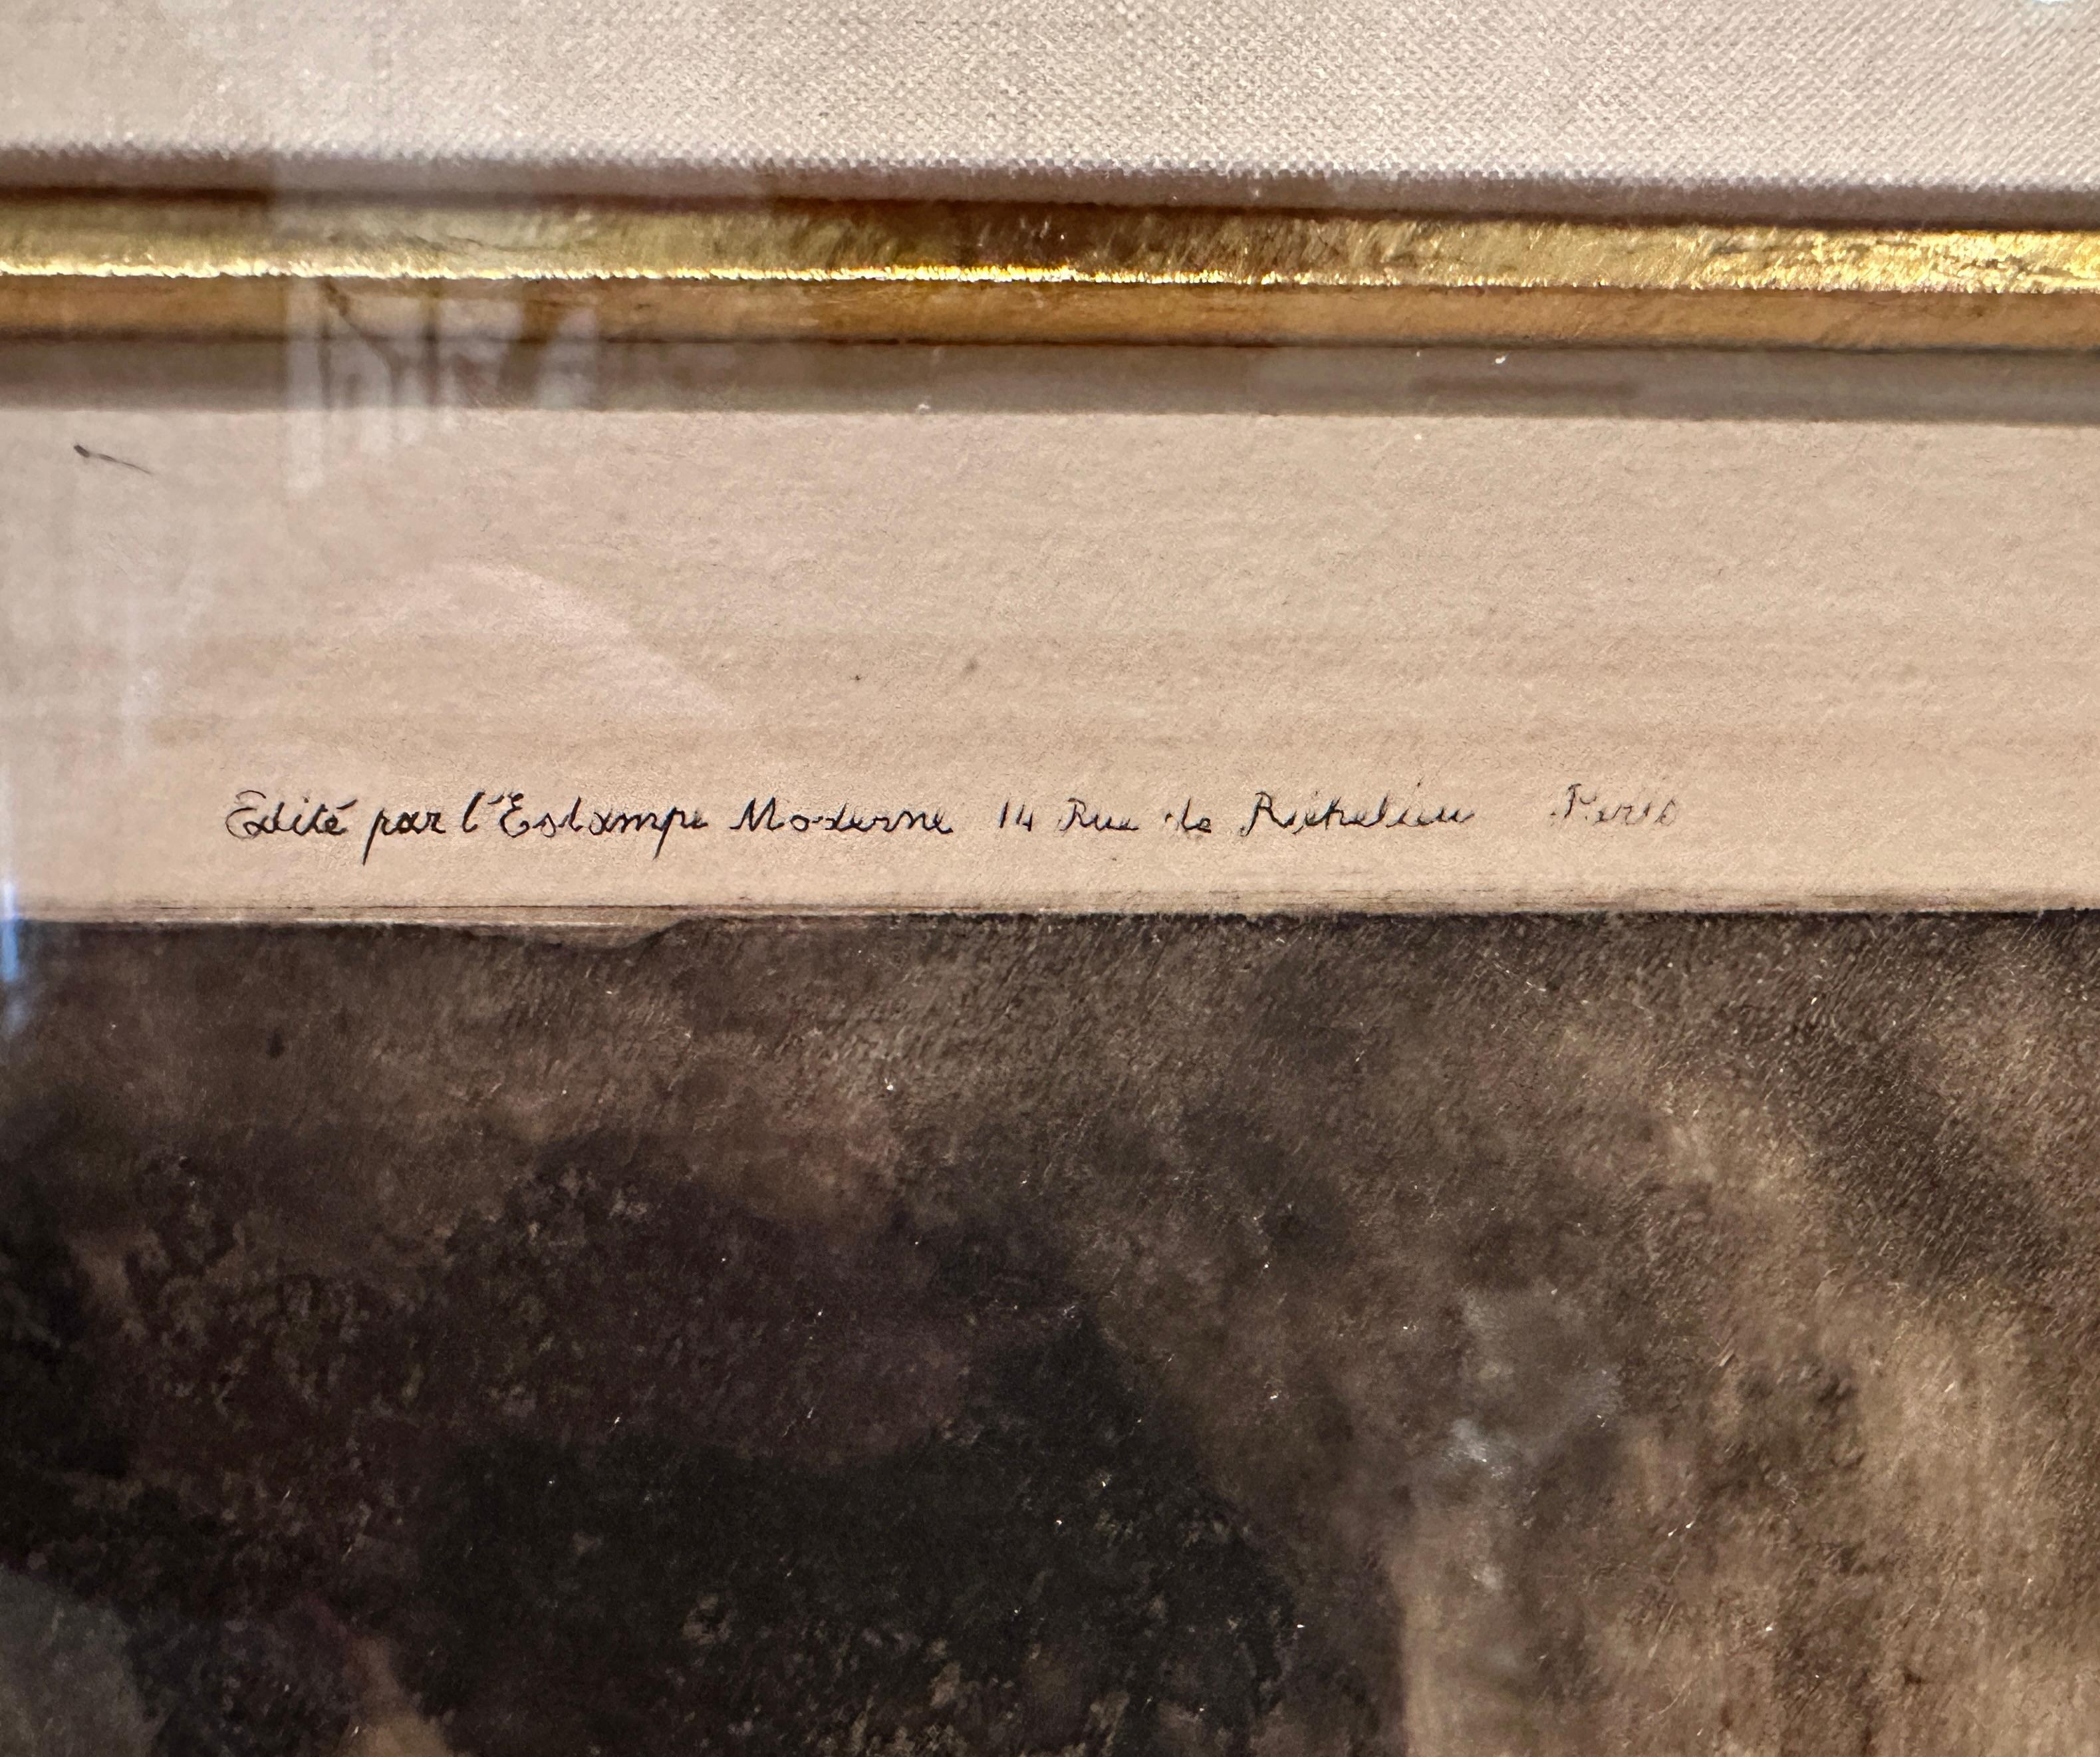 Edité par l'Estampe Moderne 14 Rue de Richelieu Paris